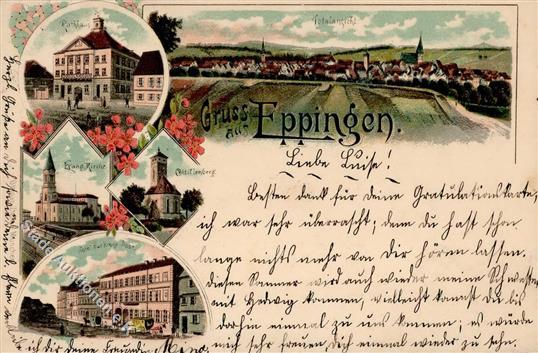 Rathaus
Totalansicht
Gruss
aus Eppingen.
Evang. Kirche
Ottilienberg
Liebe Luise!
Besten dank für deine Gratulationskarte,
ich war sehr überrascht; denn du hast schon
lange nichts mehr von dir hören lassen.
diesen Sommer wird auch wieder meine Schwester
mit Hedwig kommen, vielleicht kannst Du bis
dorthin einmal zu uns kommen; es würde
mich sehr freuen, dich einmal wieder zu sehn.